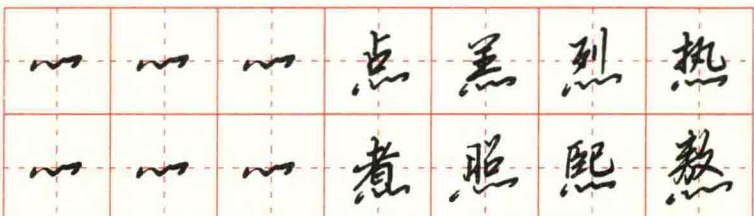 灬 灬 灬 点 羔 烈 热
灬 灬 灬 煮 照 熙 熬